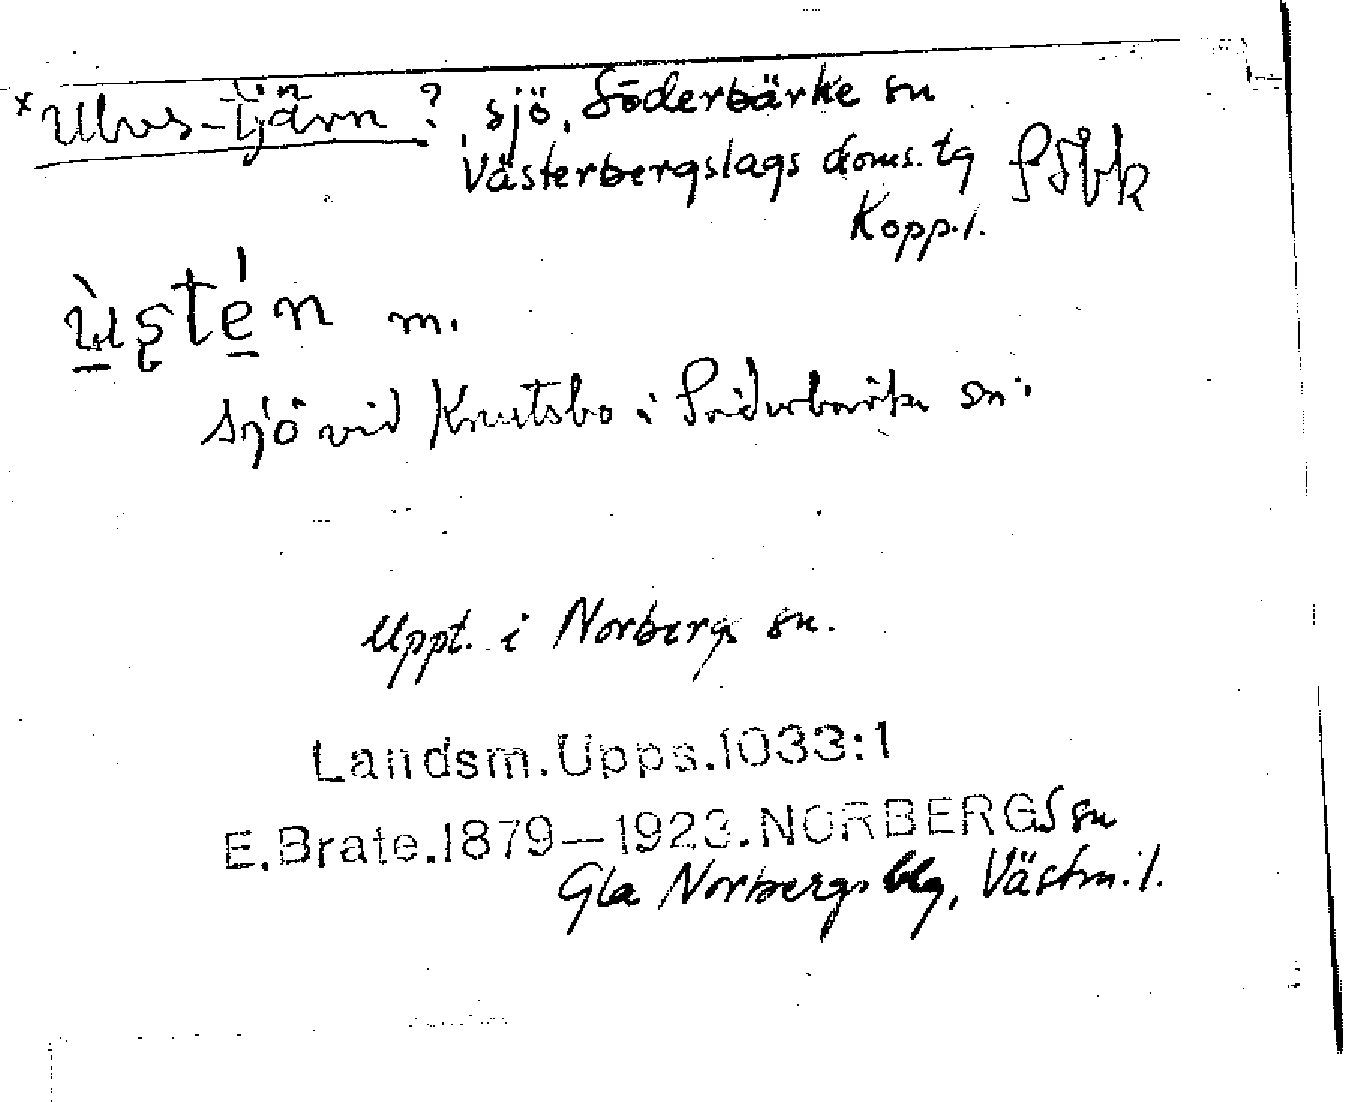 *Ulvs-tjärn ? sjö, Söderbärke sn
Västerbergslags doms. tg
Kopp.l.
ùstén m.
sjö vid Knutsbo i Söderbärke sn.
Uppt. i Norbergs sn.
Landsm.Upps.1033:1
E.Brate.1879—1923.NORBERGS sn
Gla Norbergs blg, Västm.l.